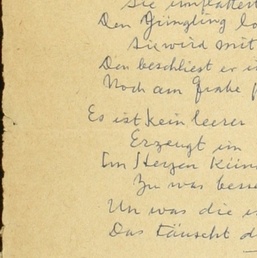 Sie umflattert
Den Jüngling lo
Sie wird mit
Den beschliest er i
Noch am Grabe p
Es ist kein leerer
Erzeugt im
Im Herzen kün
Zu was besse
Un was die i
Das täuscht d